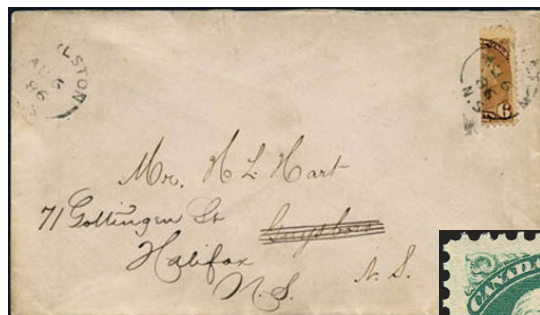 LSTON
AU 6
86
AU 6
86
N.S
6
Mr. H L Hart
71 Gottingen St
Guysboro
Halifax
N.S.
N.S.
CANADA